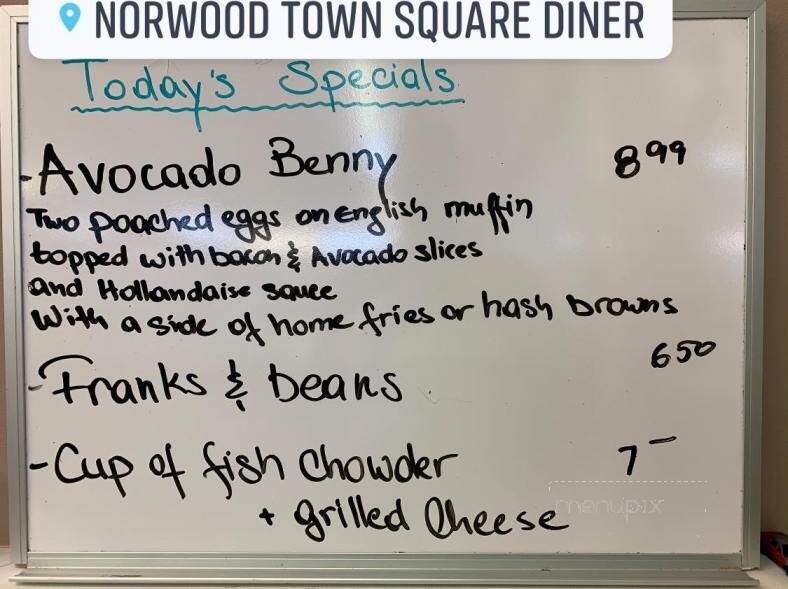 NORWOOD TOWN SQUARE DINER
Today's Specials
- Avocado Benny 8 99
Two poached eggs on English muffin
topped with bacon & Avocado slices
and Hollandaise sauce
With a side of home fries or hash browns
- Franks & beans 6 50
- Cup of fish Chowder 7 -
+ grilled Cheese
menupix